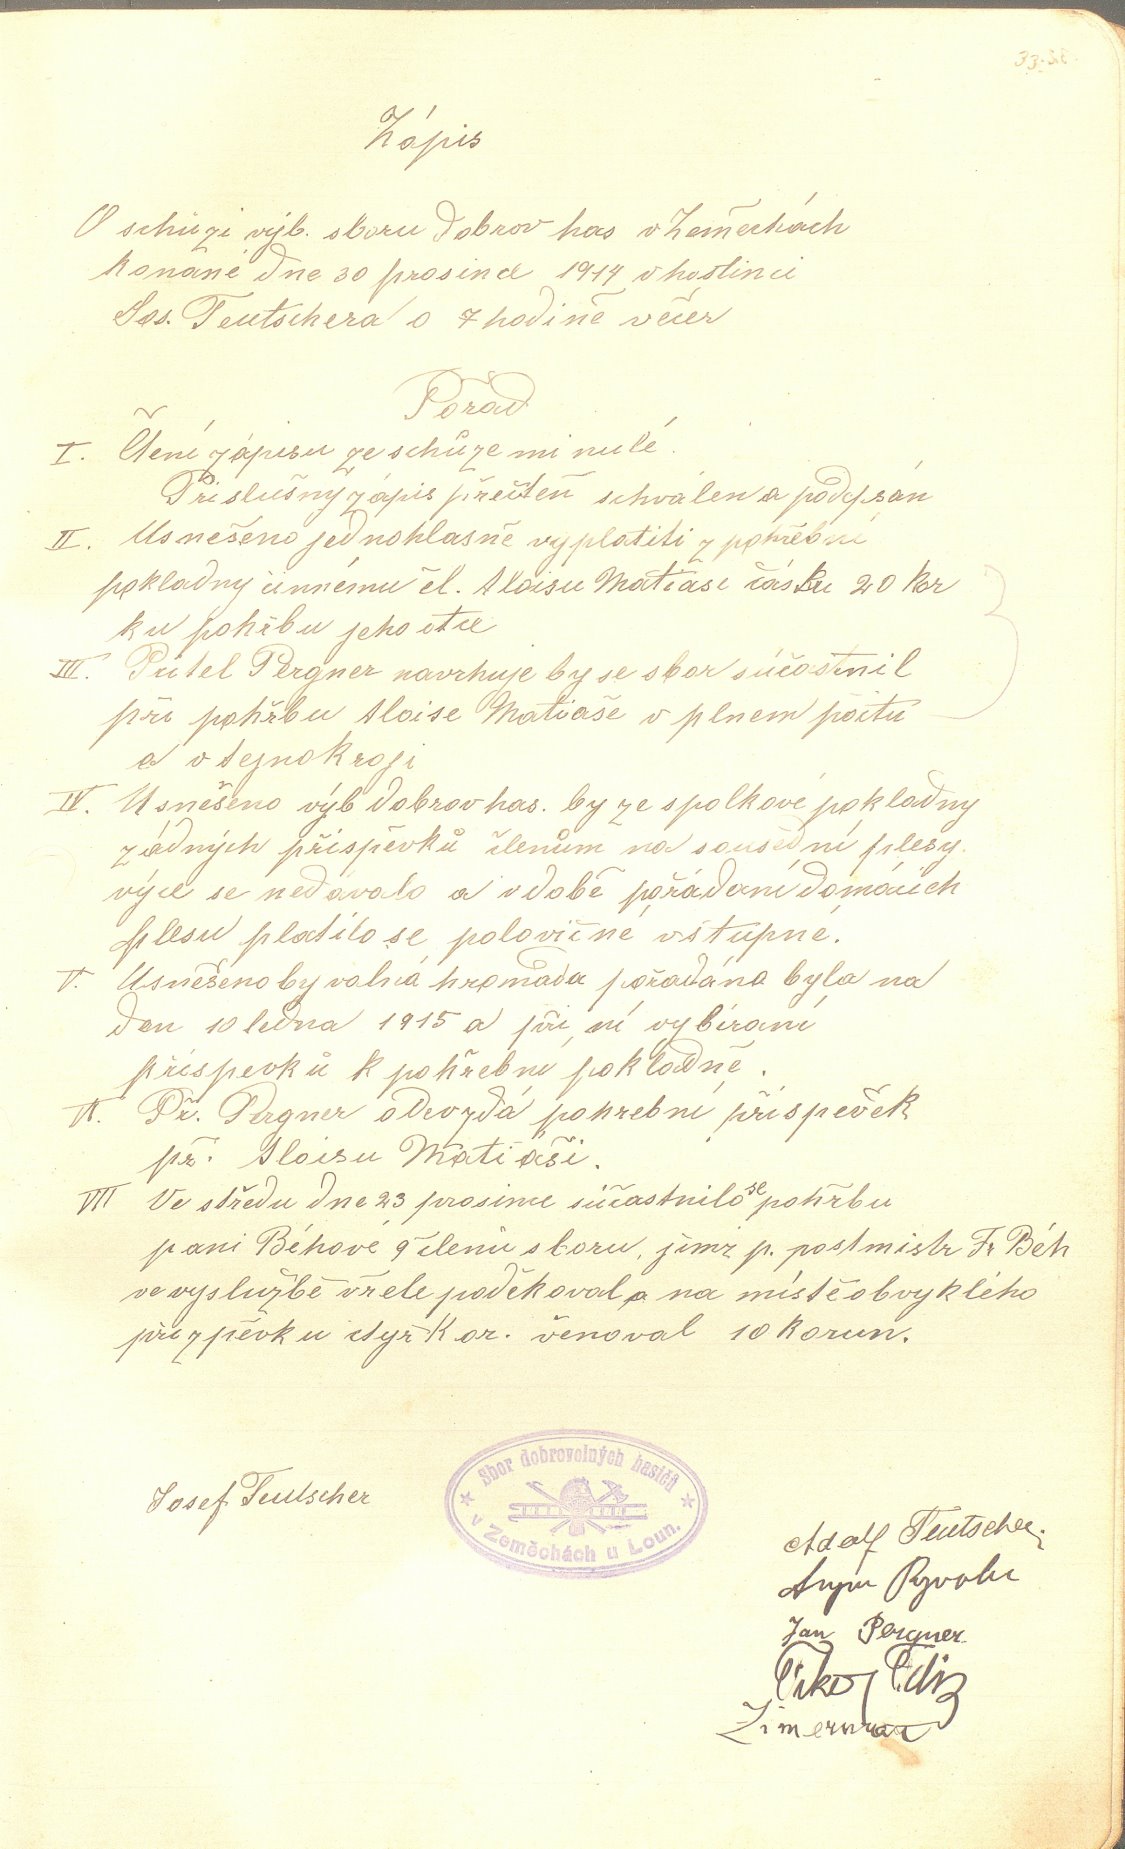 Zápis
O schůzi výb. sboru dobrov has v Zeměchách
konané dne 30 prosince 1914 v hostinci
Jos. Teutschera o 7 hodině večer
Pořad
I. Čtení zápisu ze schůze minulé.
Příslušný zápis přečten schválen a podepsán
II. Usnešeno jednohlasně vyplatiti z pohřební
pokladny činnému čl. Aloisu Matiáši částku 20 Kor
ku pohřbu jeho otce
III. Přítel Pergner navrhuje by se sbor súčastnil
při pohřbu Aloise Matiáše v plnem počtu
a v stejnokroji
IV. Usnešeno výb dobrov has. by ze spolkové pokladny
žádných příspěvků členům na sousední plesy
výce se nedávalo a v době pořádaní domácích
plesu platilo se polovičné vstupné.
V. Usnešeno by valná hromada pořadána byla na
den 10 ledna 1915 a při ní vybíraní
příspevků k pohřební pokladně.
VI. Př. Pergner odevzdá pohrební příspěvek
př. Aloisu Matiáši.
VII Ve středu dne 23 prosince súčastnilo se pohřbu
pani Béhové 9 členů sboru, jimž p. postmistr Fr Béh
ve vyslužbě vřele poděkoval a na místě obvyklého
přizpěvku čtyř Kor. věnoval 10 korun.
33
Josef Teutscher
Sbor dobrovolných hasičů
v Zeměchách u Loun.
Adolf Teutscher
Jan Pergner
Zimerman